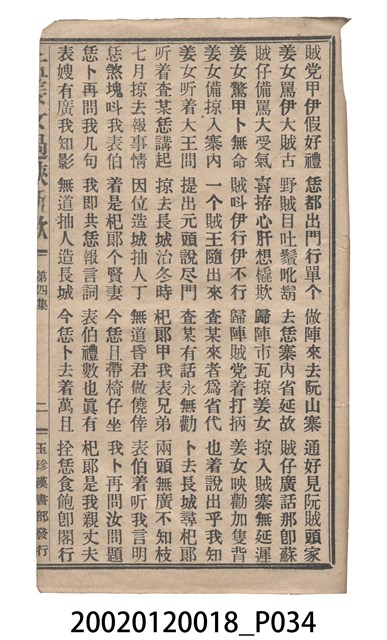 賊党甲伊假好禮 恁都出門行單个 做陣來去阮山寨 通好見阮賊頭家
姜女罵伊大賊古 野賊目吐鬚吪鬍 去恁寨內省延故 賊仔廣話那卽蘇
賊仔備罵大受氣 喜拵心肝想橇欺 歸陣市瓦掠姜女 掠入賊寨無延遲
姜女驚甲卜無命 賊叫伊行伊不行 歸陣賊党着打柄 姜女映勸加隻背
姜女備掠入寨內 一个賊王隨出來 查某來者為省代 也着說出乎我知
姜女听着大王問 提出元頭說尽門 查某有話永無勸 卜去長城尋杞郞
听着查某恁講起 掠去長城治冬時 杞郞甲我表兄弟 兩頭無廣不知枝
七月掠去報事情 因位造城抽人丁 無道昏君做僥倖 表伯着听我言明
恁煞塊呌我表伯 着是杞郞个賢妻 今恁且帶椅仔坐 我卜再問汝問題
恁卜再問我几句 我即共恁報言詞 表伯禮數也眞有 杞郞是我親丈夫
表嫂有廣我知影 無道抽人造長城 今恁卜去着萬且 拴恁食飽卽閣行
第四集
二
玉珍漢書部發行
20020120018_P034